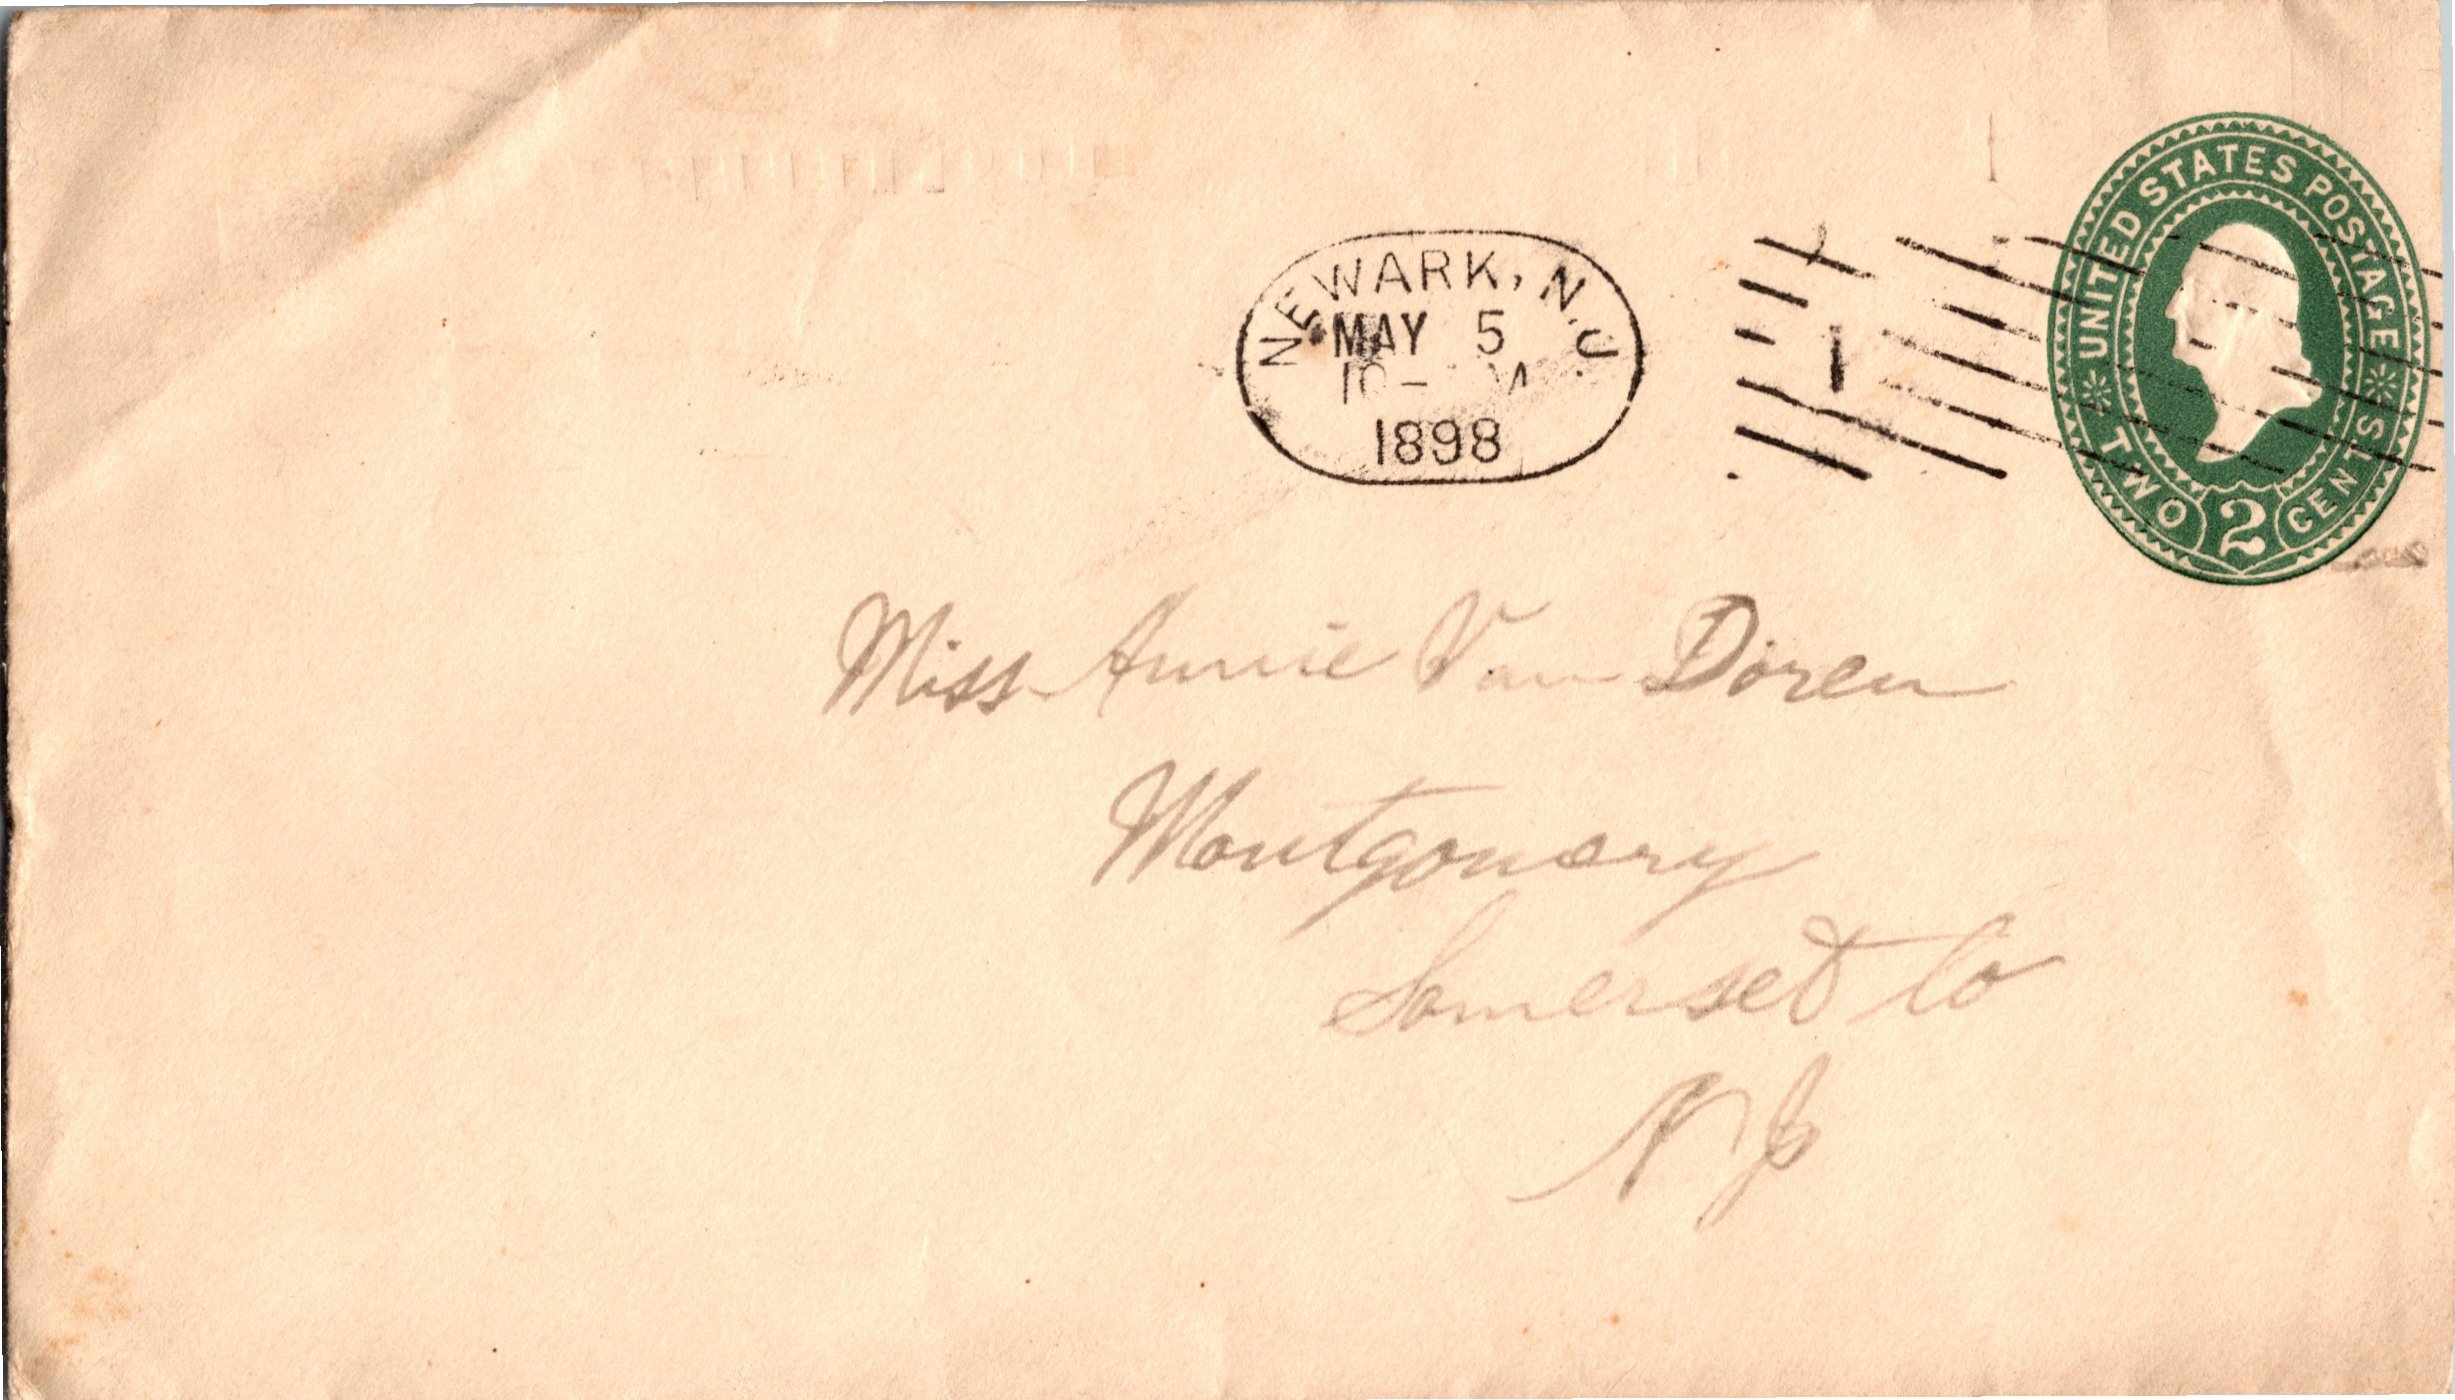 NEWARK, N.J.
MAY 5
10-
1898
1
UNITED STATES POSTAGE
TWO 2 CENTS
Miss Annie Van Doren
Montgomery
Somerset Co
N J